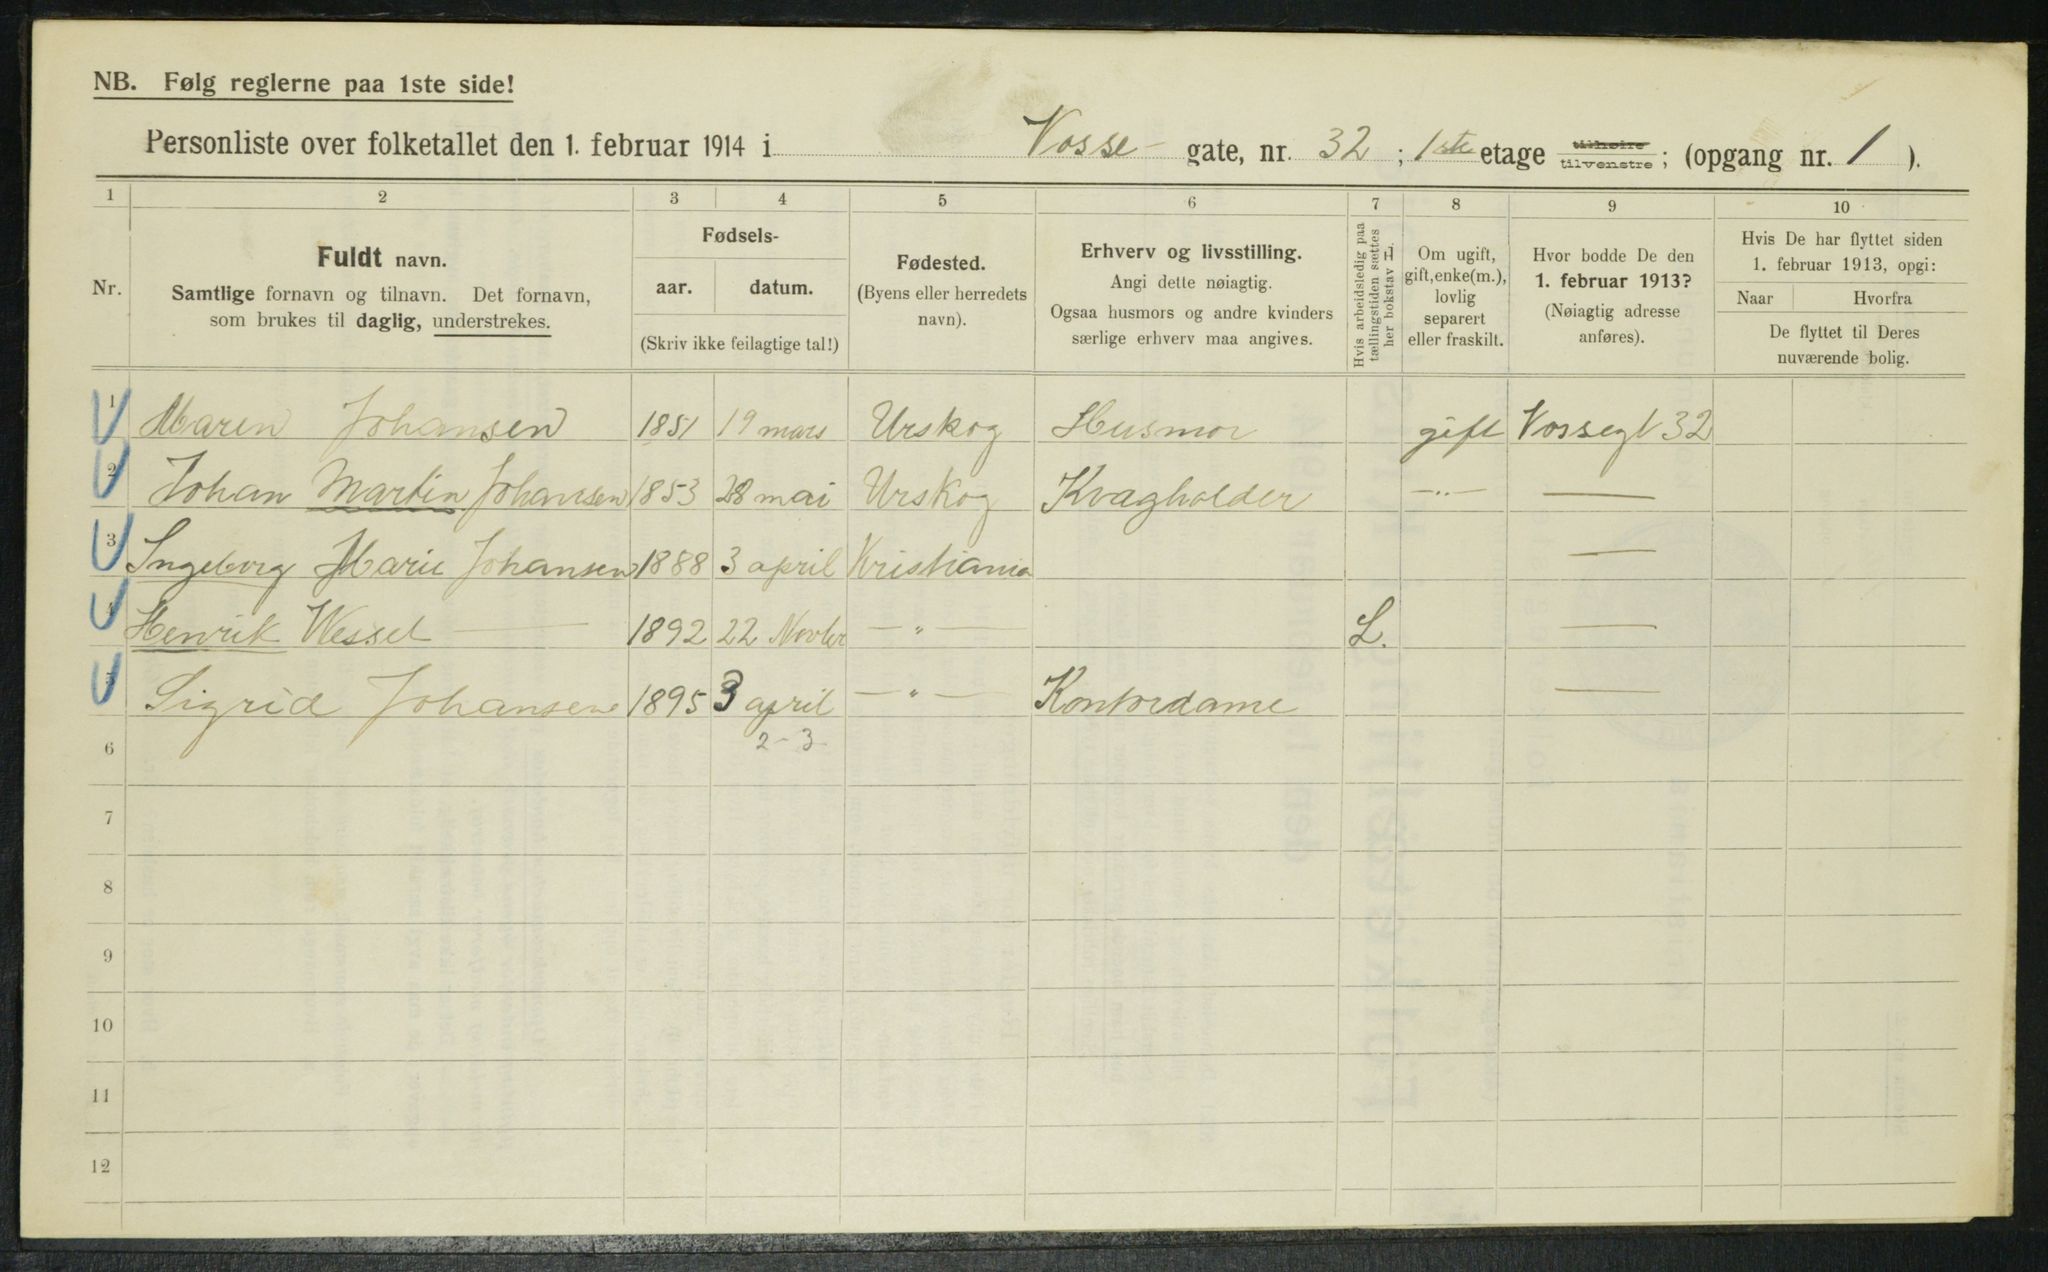 NB. Følg reglerne paa 1ste side!
Personliste over folketallet den 1. februar 1914 i Vosse- gate, nr. 32 ; 1ste etage tilhøire tilvenstre ; (opgang nr. 1 ).
1 2 3 4 5 6 7 8 9 10
Nr.
Fuldt navn.
Samtlige fornavn og tilnavn. Det fornavn,
som brukes til daglig, understrekes.
Fødsels-
aar. datum.
(Skriv ikke feilagtige tal!)
Fødested.
(Byens eller herredets
navn).
Erhverv og livsstilling.
Angi dette nøiagtig.
Ogsaa husmors og andre kvinders
særlige erhverv maa angives.
Hvis arbeidsledig paa
tællingstiden sættes
her bokstav L
Om ugift,
gift, enke(m.),
lovlig
separert
eller fraskilt.
Hvor bodde De den
1. februar 1913?
(Nøiagtig adresse
anføres).
Hvis De har flyttet siden
1. februar 1913, opgi:
Naar Hvorfra
De flyttet til Deres
nuværende bolig.
1 Maren Johansen 1851 19 mars Urskog Husmor gift Vossegt 32
2 Johan Martin Johansen 1853 28 mai Urskog Kvægholder —„— —
3 Ingeborg Marie Johansen 1888 3 april Kristiania —
4 Henrik Wessel — 1892 22 Novbr —„— L. —
5 Sigrid Johansen 1895 3 april —„— Kontordame —
6 2-3
7
8
9
10
11
12